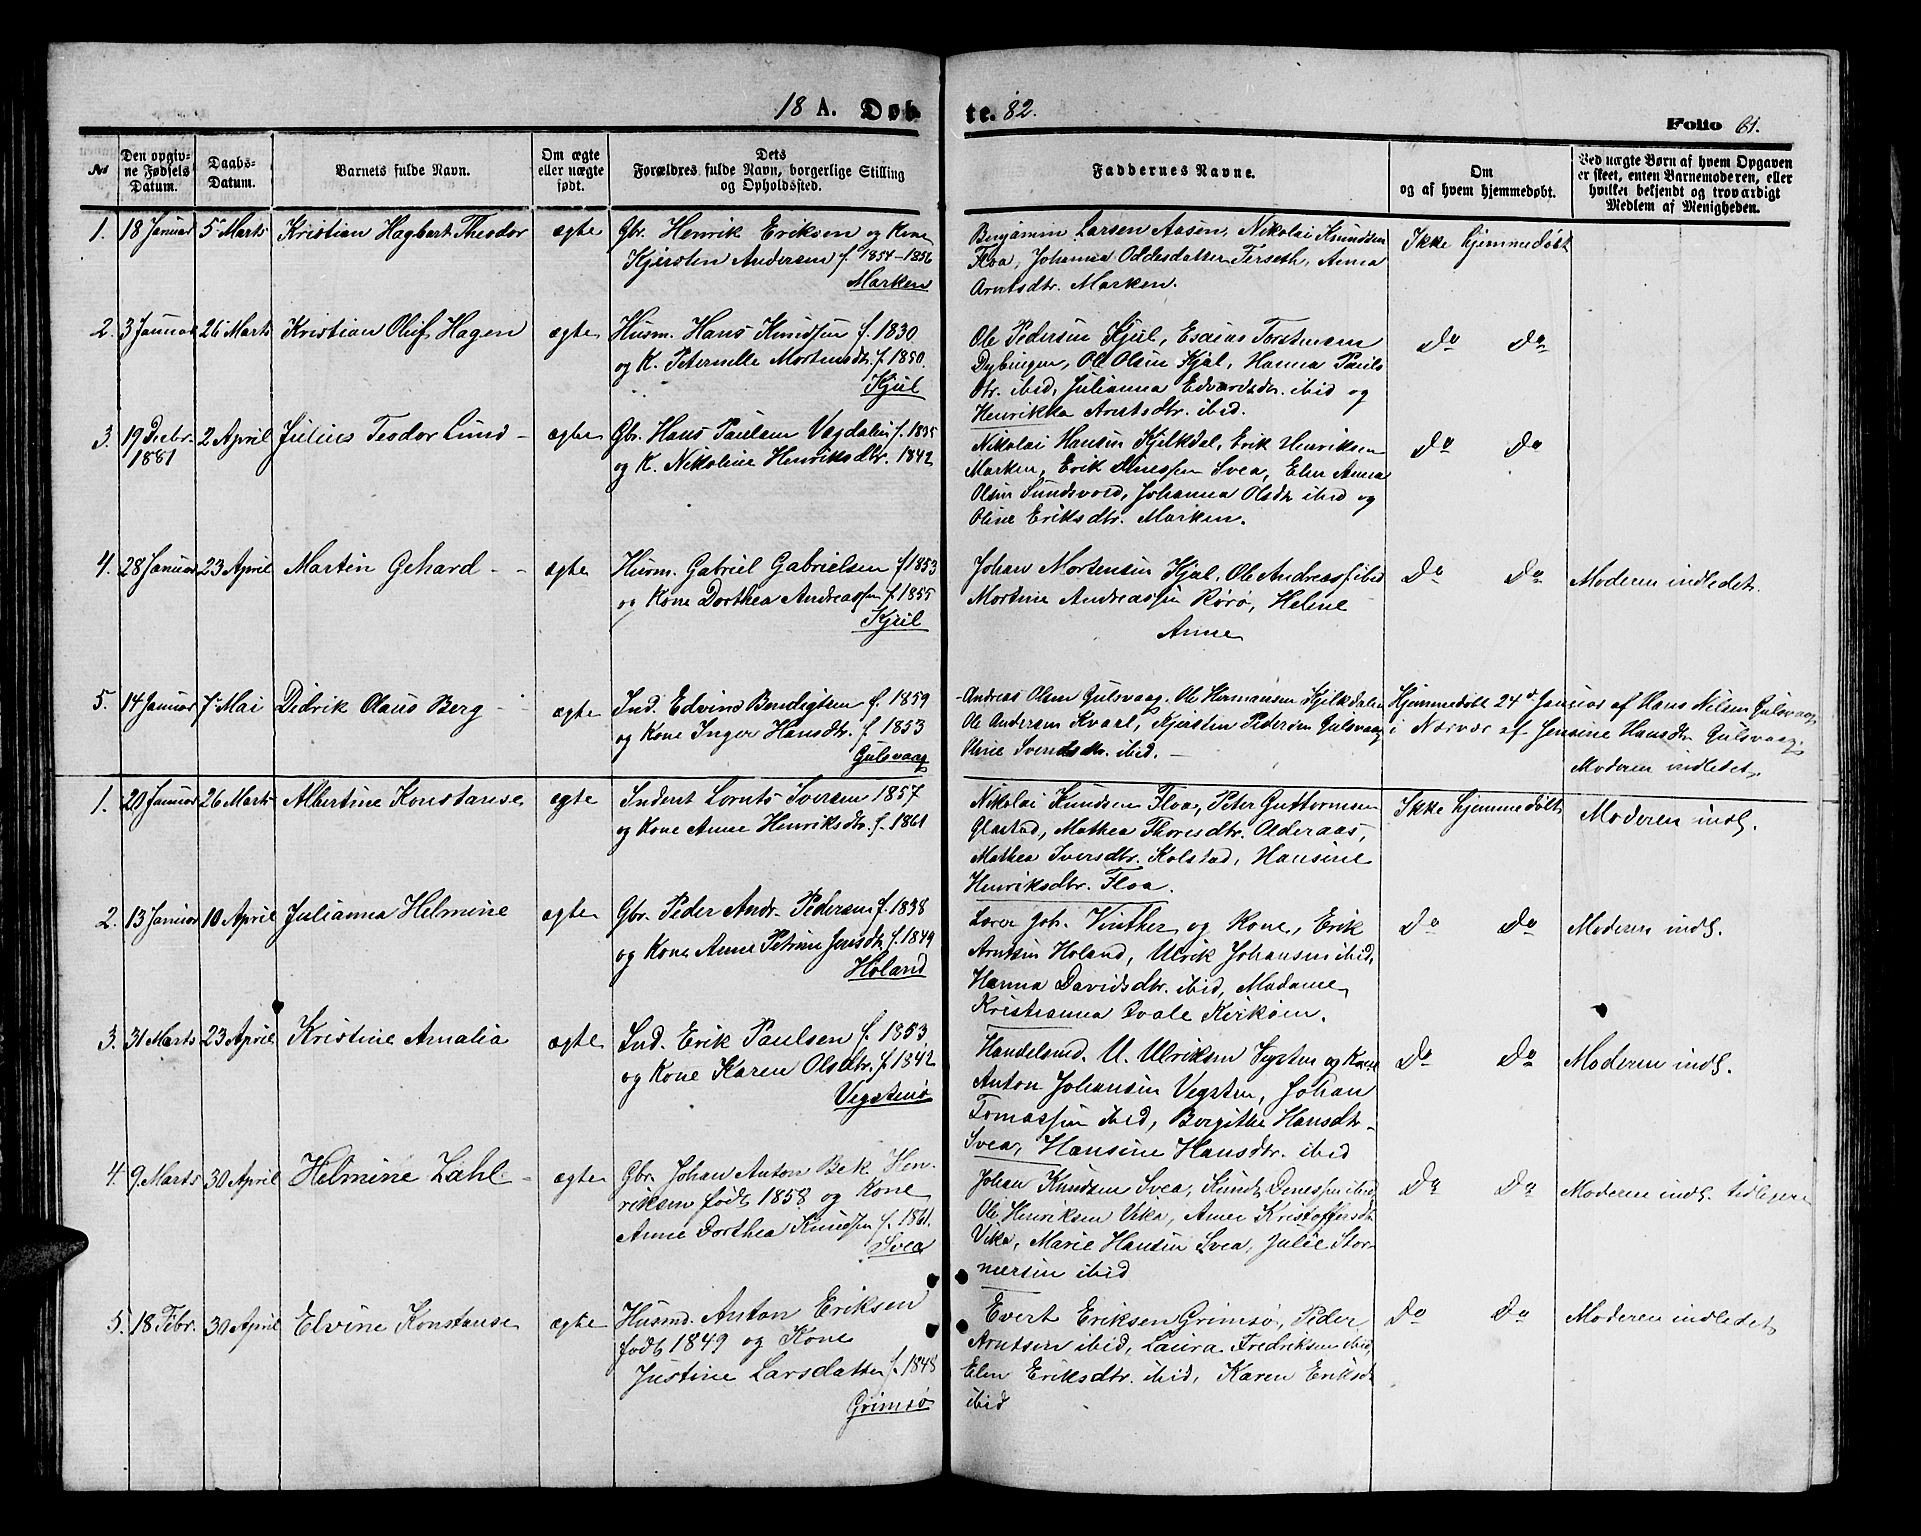 18 A. Døb
te. 82.
Folio 61.
No
Den opgiv-
ne Fødsels
Datum.
Daabs-
Datum.
Barnets fulde Navn.
Om ægte
eller uægte
født.
Dets
Forældres fulde Navn, borgerlige Stilling
og Opholdssted.
Faddernes Navne.
Om
og af hvem hjemmedøbt.
Ved uægte Børn af hvem Opgaven
er skeet, enten Barnemoderen, eller
hvilket bekjendt og troværdigt
Medlem af Menigheden.
1. 18 Januar 5 Marts Kristian Hagbart Theodor ægte Gbr. Henrik Eriksen og Kone
Kjersten Andersen f. 1854-1856
Marken
Benjamin Larsen Aasen, Nikolai Knudsen
Floa, Johanna Oddesdatter Forseth, Anna
Arntsdtr. Marken.
Ikke hjemmedøbt
2. 3 Januar 26 Marts Kristian Oluf Hagen ægte Husm. Hans Knudsen f. 1830
og K. Peternelle Mortensdtr. f. 1850.
Kjul
Ole Pedersen Kjul, Esaias Torstensen
Dybingen, Ole Olsen Kjul, Hanna Pauls
dtr. ibid, Julianna Edvardsdr. ibid og
Henrikka Arntsdtr. ibid.
Do Do
3. 19 Decbr. 2 April Julius Teodor Lund - ægte Gbr. Hans Paulsen Vagdalen f. 1835
1881
og K. Nikoline Henriksdtr. 1842
Nikolai Hansen Kjelkdal, Erik Henriksen
Marken, Erik Enessen Svea, Elen Anna
Olsen Sundsvold, Johanna Olsdtr ibid og
Oline Eriksdtr. Marken.
Do Do
4. 28 Januar 23 April Martin Gehard - - ægte Husm. Gabriel Gabrielsen f 1853
og Kone Dorthea Andreassen f. 1855
Kjul
Johan Mortensen Kjul, Ole Andreass. ibid
Mortine Andreassen Rørø, Heline
Anne
Do Do Moderen indledet.
5. 14 Januar 7 Mai Didrik Olaus Berg - ægte Ind. Edvins Bendigtsen f. 1859
og Kone Inger Hansdtr. f. 1853
Gulsvaag
Andreas Olsen Gulsvaag, Ole Hermansen Kjelkdalen
Ole Andersen Kvarl, Kjersten Pedersen Gulsvaag
Oline Svendsdtr. ibid. -
Hjemmedøbt 24de Januar af Hans Nilsen Gulsvaag
i Nærvær af Jensine Hansdtr Gulsvaag.
Moderen indledet.
1. 20 Januar 26 Marts Albertine Konstanse ægte Inderst Lornts Iversen 1857
og Kone Anne Henriksdtr. f. 1861
Nikolai Knudsen Floa, Peter Guttormsen
Glastad, Mathea Thoresdtr. Olderaas,
Mathea Iversdtr. Kolstad, Hansine
Henriksdtr. Floa.
Ikke hjemmedøbt Moderen indl.
2. 13 Januar 10 April Julianna Helmine ægte Gbr. Peder Andr. Pedersen f. 1838
og Kone Anne Petrine Jensdtr f. 1849
Høland
Lærer Joh. Vinther og Kone, Erik
Arntsen Høland, Ulrik Johansen ibid,
Hanna Davidsdtr. ibid, Madame
Kristianna Qvale Kirkøen.
Do Do Moderen indl.
3. 31 Marts 23 April Kristine Amalia ægte Ind. Erik Paulsen f. 1853
og Kone Karen Olsdtr. f 1842
Vegstenø
Handelsmd. U. Ulriksen Vegsten og Kone
Anton Johansen Vegsten, Johan
Tomassen ibid, Borgitha Hansdtr.
Svea, Hansine Hansdtr. ibid
Do Do Moderen indl.
4. 9 Marts 30 April Helmine Zahl - ægte Gbr. Johan Anton Bek Hen-
riksen født 1858 og Kone
Anne Dorthea Knudsen f. 1861.
Svea
Johan Knudsen Svea, Knudt Enessen ibid,
Ole Henriksen Vika, Anne Kristoffersdtr
Vika, Marie Hansen Svea, Julie Stor-
mersen ibid
Do Do Moderen indl. tidligere
5. 18 Febr. 30 April Elvine Konstanse ægte Husmd. Anton Eriksen
født 1849 og Kone
Justine Larsdatter f. 1848
Grimsø
Evert Eriksen Grimsø, Peder
Arntsen ibid, Laura Fredriksen ibid,
Elen Eriksdtr. ibid, Karen Eriksdt
ibid
Do Do Moderen indledet